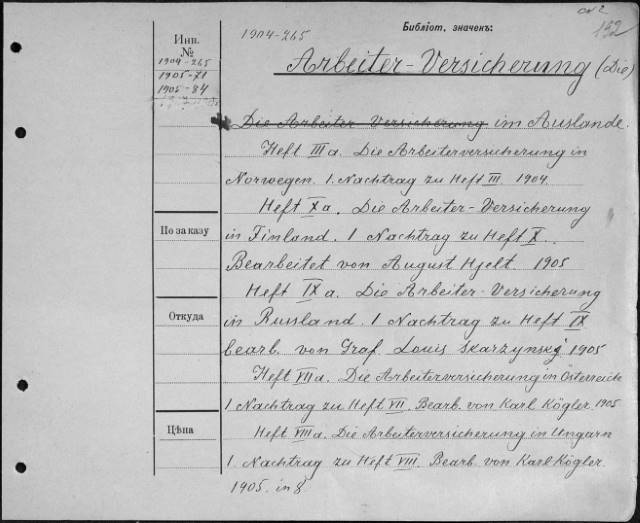 ои 2
132
Библіот. значекъ:
Инв. №
1904-265
1905-71
1905-84
1904-265
Arbeiter-Versicherung (Die)
Die Arbeiter Versicherung im Auslande.
Heft IIIa. Die Arbeiterversicherung in
Norwegen. 1. Nachtrag zu Heft III. 1904.
Heft Xa. Die Arbeiter-Versicherung
По заказу
in Finland. 1 Nachtrag zu Heft X.
Bearbeitet von August Hjelt. 1905
Heft IXa. Die Arbeiter-Versicherung
Откуда
in Russland. 1 Nachtrag zu Heft IX
bearb. von Graf. Louis Skarzynski 1905
Heft VIIa. Die Arbeiterversicherung in Österreich
1 Nachtrag zu Heft VII. Bearb. von Karl Kögler. 1905
Цѣна
Heft VIIIa. Die Arbeiterversicherung in Ungarn
1. Nachtrag zu Heft VIII. Bearb. von Karl Kögler.
1905. in 8.